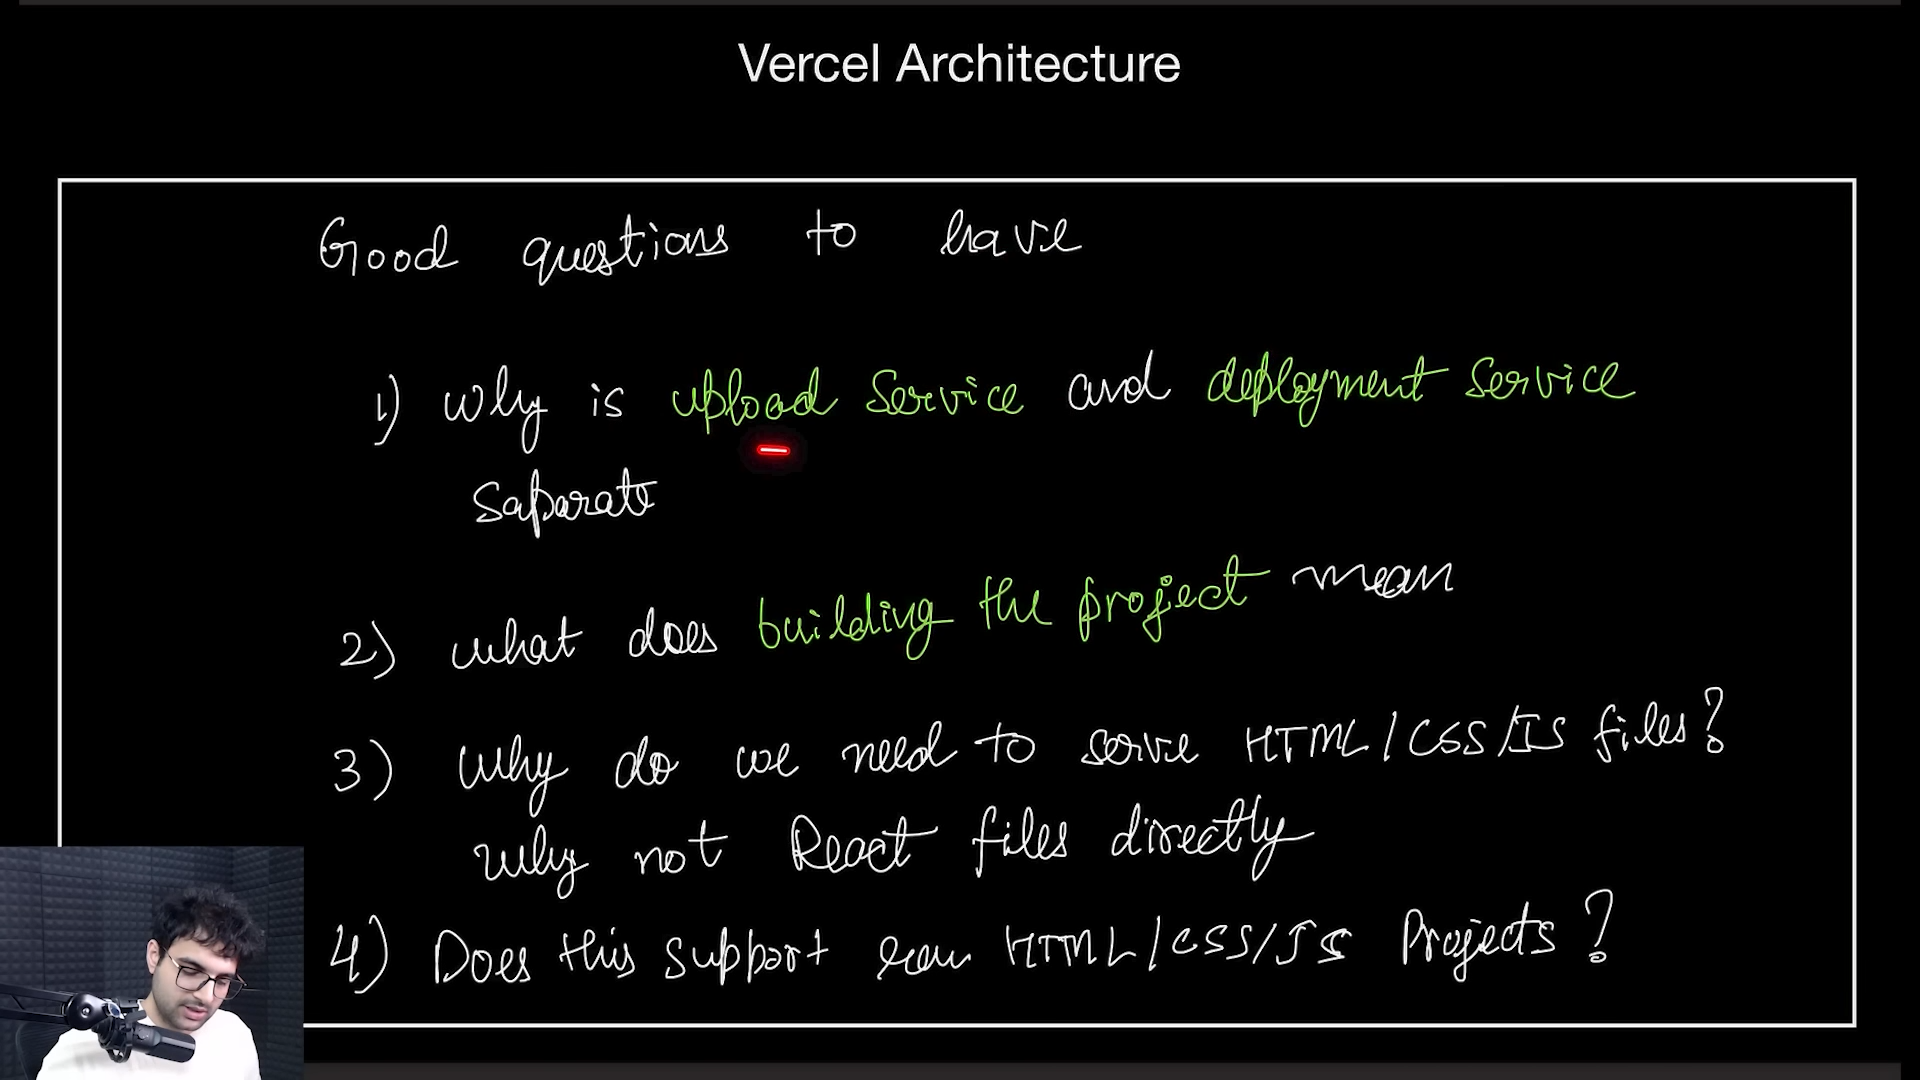 Vercel Architecture
Good questions to have
1) why is upload service and deployment service
saparate
2) what does building the project mean
3) why do we need to serve HTML/CSS/JS files?
why not React files directly
4) Does this support raw HTML/CSS/JS Projects?